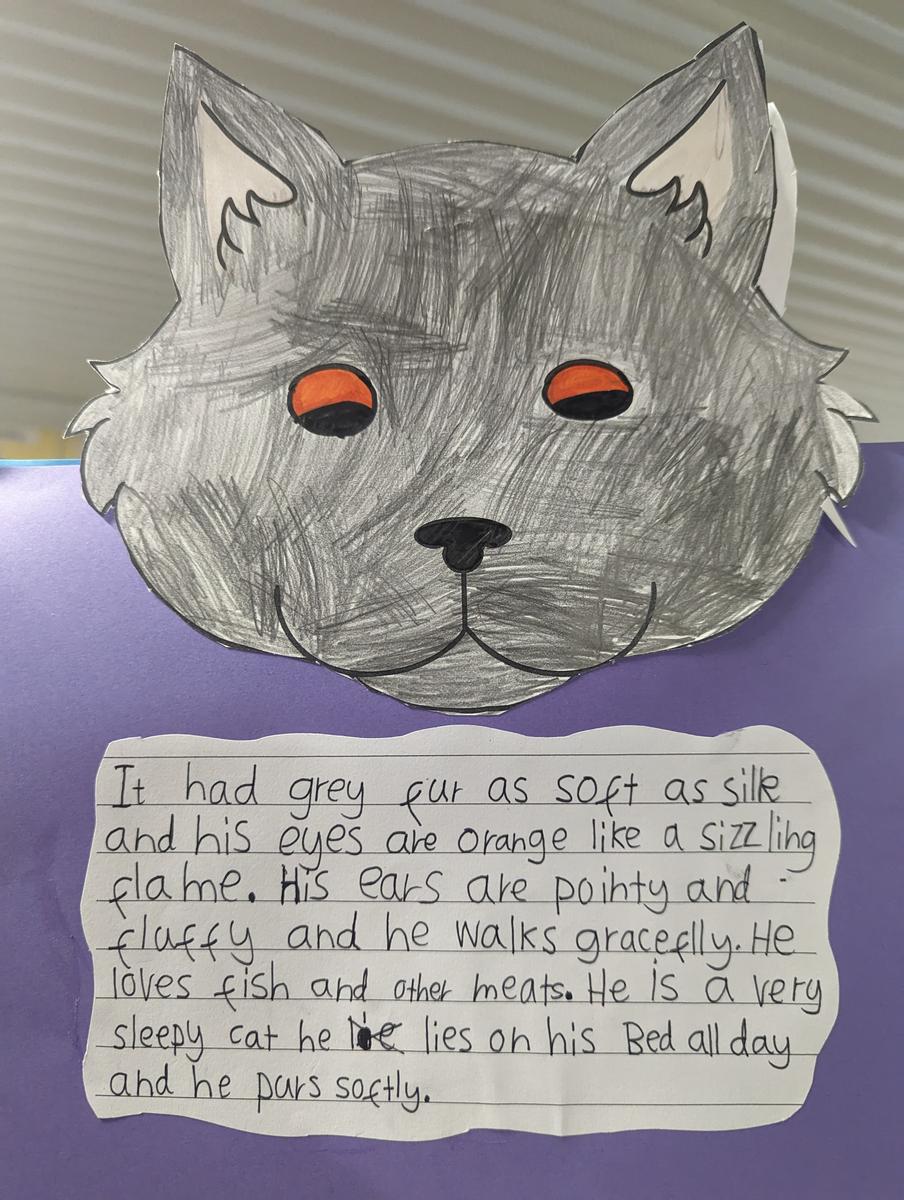 It had grey fur as soft as silk
and his eyes are orange like a sizzling
flame. His ears are pointy and
fluffy and he walks graceflly. He
loves fish and other meats. He is a very
sleepy cat he lies on his Bed all day
and he purs softly.